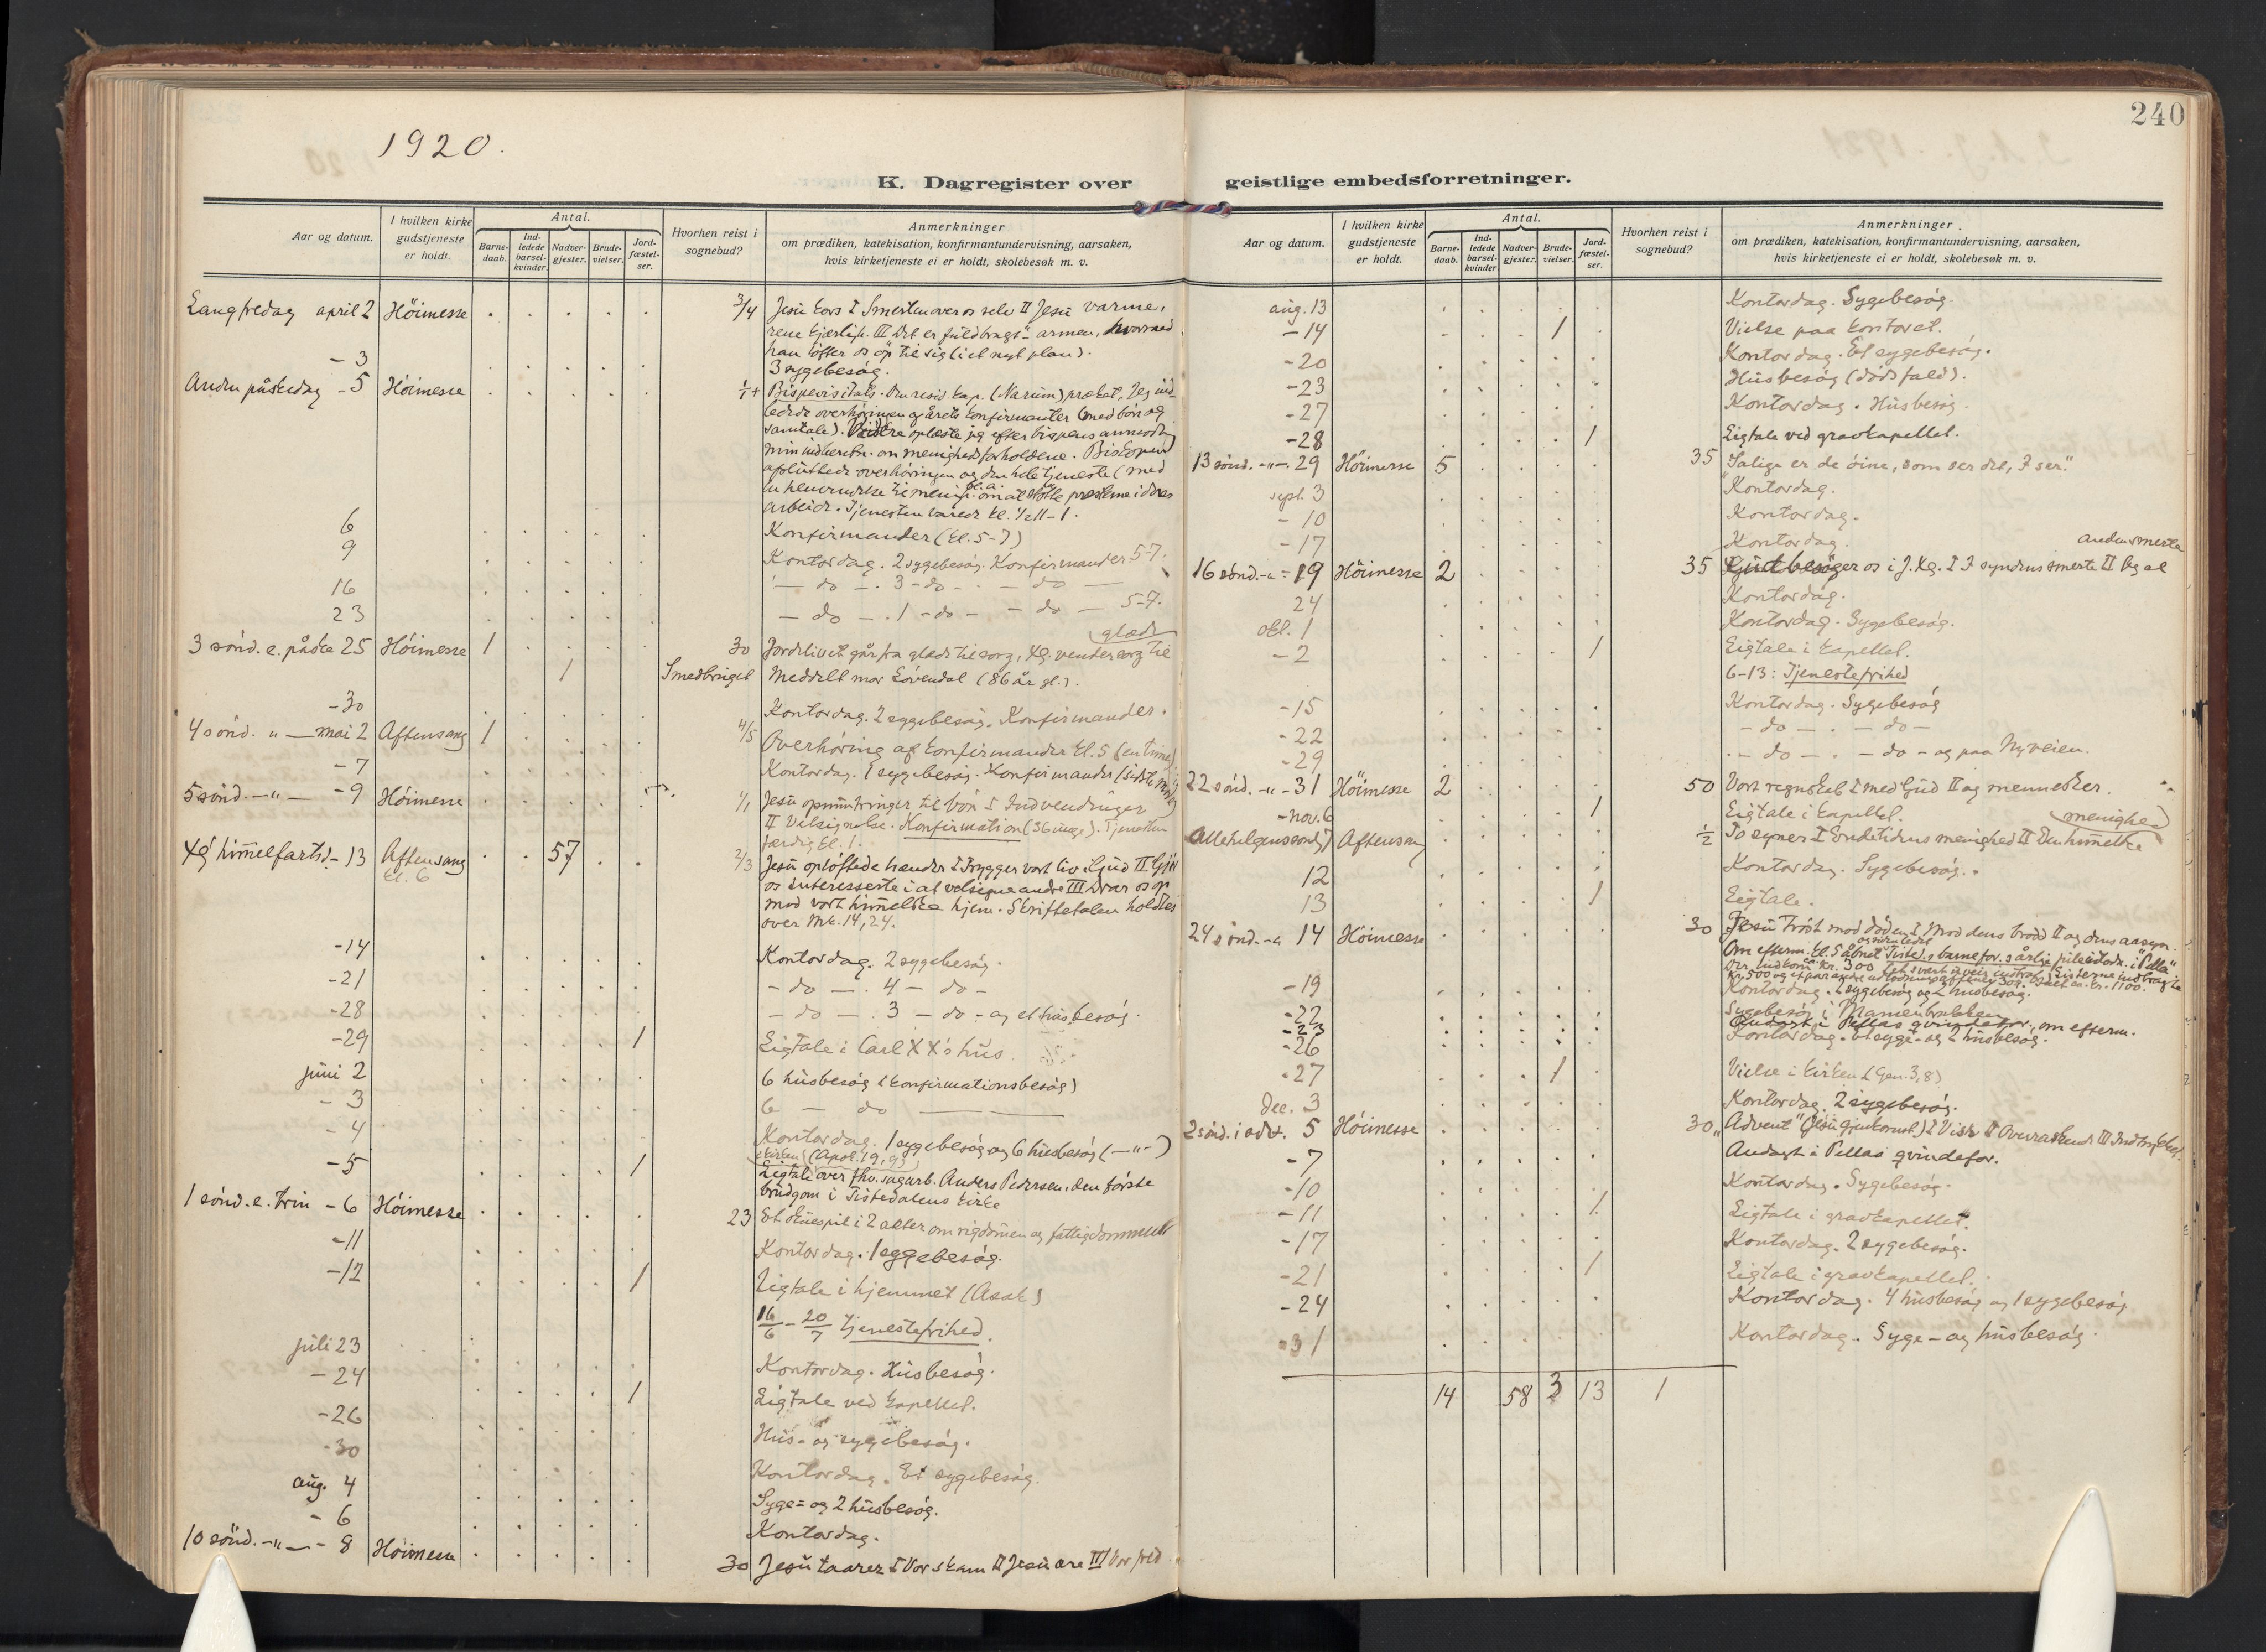 240
1920.
K. Dagregister over geistlige embedsforretninger.
Aar og datum.
I hvilken kirke gudstjeneste er holdt.
Antal.
Barne-daab.
Ind-ledede barsel-kvinder.
Nadver-gjester.
Brude-vielser.
Jord-fæstel-ser.
Hvorhen reist i sognebud?
Anmerkninger
om prædiken, katekisation, konfirmantundervisning, aarsaken,
hvis kirketjeneste ei er holdt, skolebesøk m. v.
Langfredag april 2 Höimesse 3/4 Jesu kors I Smerten over os selv II Jesu varme,
rene kjærligh. III Det er fuldbragt - armen, hvormed
han löfter os op til sig (i et nyt plan).
- 3 3 sygebesög.
Anden påskedag - 5 Höimesse 1/1+ Bispevisitats. Den resid. kap. (Narum) præket. Jeg ind
ledede overhöringen af årets konfirmanter (med bön og
samtale). Videre oplæste jeg efter bispens anmodning
min indberetn. om menighedsforholdene. Biskopen
afsluttede overhöringen og den hele tjeneste (med
en henvendelse til menigh. bl. a. om at stötte presterne i deres
arbeide. Tjenesten varede kl. 1/2 11-1.
6 Konfirmander (kl. 5-7)
9 Kontordag. 2 sygebesög. Konfirmander 5-7.
16 - do - . 3 - do - . - do -
23 - do - . 1 - do - - do - 5-7.
3 sönd. e. påske 25 Höimesse 1 30 Jordelivet går fra glæde til sorg, Kg. vender sorg til glæde
1 Smedbringet Meddelt mor Lövendal (86 år gl.).
- 30 Kontordag. 2 sygebesög. Konfirmander.
4 sönd. " — mai 2 Aftensang 1 4/5 Overhöring af konfirmander kl. 5 (en time).
- 7 Kontordag. 1 sygebesög. Konfirmander (sidste möde)
5 sönd. — " — - 9 Höimesse 1/1 Jesu opmuntringer til bön I Indvendinger
II Velsignelse. Konfirmation (36 unge). Tjenesten
færdig kl. 1.
Kg' himmelfartsd. - 13 Aftensang kl. 6 57 2/3 Jesu oplöftede hænder I Trygger vort liv i Gud II Gjör
os interesserte i at velsigne andre III Drar os op
mod vort himmelske hjem. Skriftetalen holdtes
over Mk. 14, 24.
- 14 Kontordag. 2 sygebesög.
- 21 - do - . 4 - do -
- 28 - do - . 3 - do - og et husbesög.
- 29 1 Ligtale i Carl XX's hus.
juni 2 6 husbesög (konfirmationsbesög)
- 3 6 - do -
- 4 Kontordag. 1 sygebesög og 6 husbesög (- " -)
- 5 1 Ligtale i kirken (Apol. 19, 9) over fhv. sagarb. Anders Pedersen, den förste
brudgom i Tistedalens kirke
1 sönd. e. trin - 6 Höimesse 23 Et skuespil i 2 akter om rigdommen og fattigdommen
- 11 Kontordag. 1 sygebesög.
- 12 1 Ligtale i hjemmet (Asak)
16/6 - 20/7 Tjenestefrihed.
juli 23 Kontordag. Husbesög.
- 24 1 Ligtale ved kapellet.
- 26 Hus- og sygebesög.
- 30 Kontordag. Et sygebesög.
aug. 4 Syge- og 2 husbesög.
- 6 Kontordag.
10 sönd. - " - - 8 Höimesse 30 Jesu taarer I Vor skam II Jesu ære III Vor fred
Aar og datum.
I hvilken kirke gudstjeneste er holdt.
Antal.
Barne-daab.
Ind-ledede barsel-kvinder
Nadver-gjester.
Brude-vielser.
Jord-fæstel-ser.
Hvorhen reist i sognebud?
Anmerkninger.
om prædiken, katekisation, konfirmantundervisning, aarsaken,
hvis kirketjeneste ei er holdt, skolebesøk m. v.
aug. 13 Kontordag. Sygebesög.
- 14 1 Vielse paa kontoret.
- 20 Kontordag. Et sygebesög.
- 23 Husbesög (dödsfald).
- 27 Kontordag. Husbesög.
- 28 1 Ligtale ved gravkapellet.
13 sönd. - " - 29 Höimesse 5 35 "Salige er de öine, som ser det, I ser."
sept. 3 Kontordag.
- 10 Kontordag.
- 17 Kontordag.
16 sönd. - " - 19 Höimesse 2 35 Gud besöger os i J. Kg. I I syndens smerte II Og al anden smerte
24 Kontordag.
okt. 1 Kontordag. Sygebesög.
- 2 1 Ligtale i kapellet.
6-13: Tjenestefrihed
- 15 Kontordag. Sygebesög
- 22 - do - . - do -
- 29 - do - . - do - og paa Nyveien.
22 sönd. - " - 31 Höimesse 2 50 Vort regnskab I med Gud II og mennesker.
- nov. 6 1 Ligtale i kapellet.
Allehelgenssöndag 7 Aftensang 1/2 To syner I Endetidens menighed II Den himmelske menighed
12 Kontordag. Sygebesög.
13 1 Ligtale.
24 sönd. - " 14 Höimesse 30 Jesu tröst mod döden I Mod dens brodd II og dens aasyn.
Om efterm. kl. 5 åbnet Tisted. s barnefor. s årlige
Kontordag. 2 sygebesög og 2 husbesög.
- 19
- 22 Sygebesög i
- 23 Andagt i Pellas qvindefor. om efterm.
- 26 Kontordag. Et syge- og 2 husbesög.
- 27 1 Vielse i kirken (Gen. 3, 8)
dec. 3 Kontordag. 2 sygebesög.
2 sönd. i adv. 5 Höimesse 30 "Advent" (Jesu gjenkomst) I Vis II Overraskende III
- 7 Andagt i Pellas qvindefor.
- 10 Kontordag. Sygebesög.
- 11 1 Ligtale i gravkapellet.
- 17 Kontordag. 2 sygebesög.
- 21 1 Ligtale i gravkapellet.
- 24 Kontordag. 4 husbesög og 1 sygebesög
- 31 Kontordag. Syge- og husbesög.
14 58 3 13 1